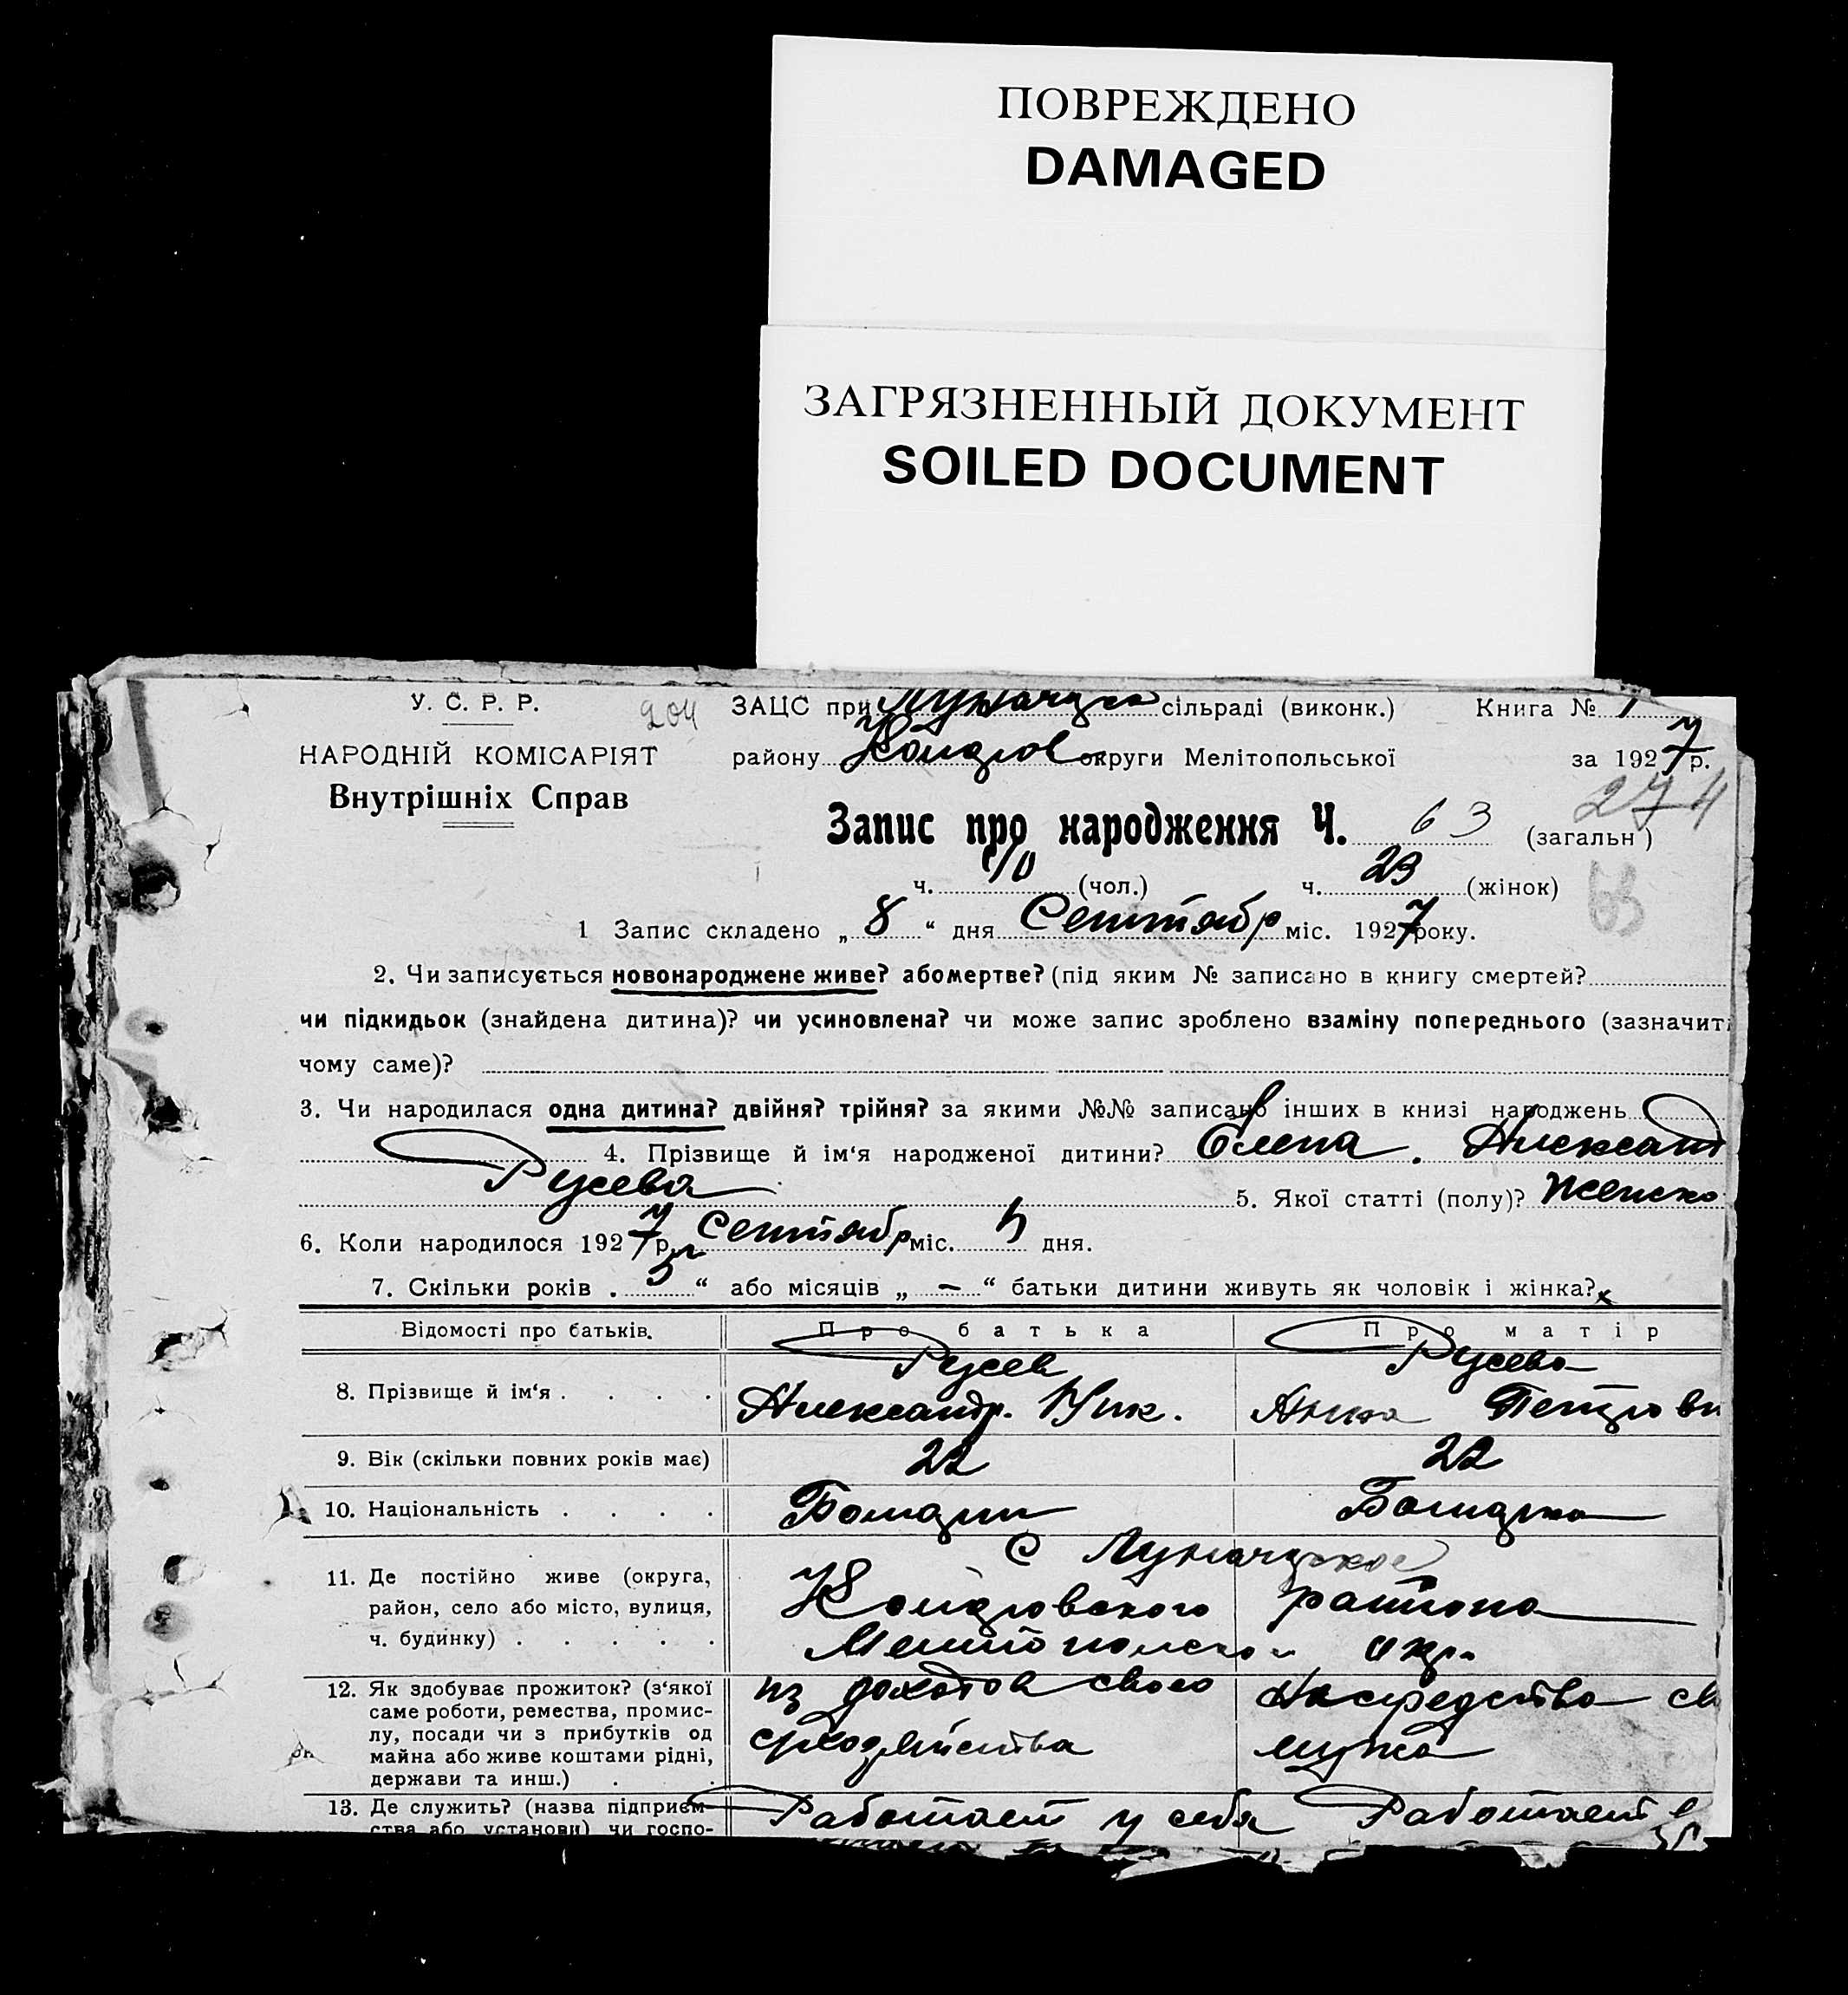 ПОВРЕЖДЕНО
DAMAGED
ЗАГРЯЗНЕННЫЙ ДОКУМЕНТ
SOILED DOCUMENT
У. С. Р. Р.
204
ЗАЦС при сільраді (виконк.)
Книга № 1
НАРОДНІЙ КОМІСАРІЯТ
району округи Мелітопольської
за 1927 р.
Внутрішніх Справ
274
Запис про народження Ч. 63 (загальн)
ч. 40 (чол.) ч. 23 (жінок)
63
1 Запис складено „ 8 “ дня Сентябр міс. 1927 року.
2. Чи записується новонароджене живе? або мертве? (під яким № записано в книгу смертей?
чи підкидьок (знайдена дитина)? чи усиновлена? чи може запис зроблено взаміну попереднього (зазначит
чому саме)?
3. Чи народилася одна дитина? двійня? трійня? за якими №№ записано інших в книзі народжень
4. Прізвище й ім‘я народженої дитини? Елена. Александ
Русева
5. Якої статті (полу)? Женско
6. Коли народилося 1927 р. Сентябр міс. 5 дня.
7. Скільки років „ 5 “ або місяців „ — “ батьки дитини живуть як чоловік і жінка?
Відомості про батьків. Про батька Про матір
8. Прізвище й ім‘я . . . .
Русев
Александр. Ник.
Русева
Анна Петровн
9. Вік (скільки повних років має) 22 22
10. Національність . . . . Болгарин Болгарка
11. Де постійно живе (округа,
район, село або місто, вулиця,
ч. будинку) . . . . .
С
района
Мелитопольской окр.
12. Як здобуває прожиток? (з‘якої
саме роботи, ремества, промис-
лу, посади чи з прибутків од
майна або живе коштами рідні,
держави та инш.) . .
из доходов своего
хозяйства
На средства св
мужа
13. Де служить? (назва підприєм-
ства або установи) чи госпо-
Работает у себя
Работает